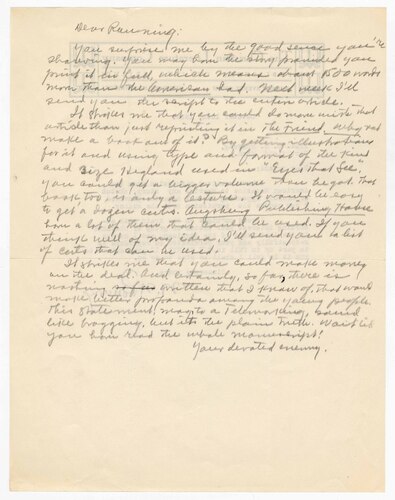 Dear Running:
You surprise me by the good sense you're
showing. You may have the story provided you
print it in full, which means about 1500 words
more than the American had. Next week I'll
send you the script to the entire article.
It strikes me that you could do more with that
article than just reprinting it in The Friend. Why not
make a book out of it? By getting illustrations
for it and using type and format of the kind
and size Hegland used in "Eyes that See",
you could get a bigger volume than he got. That
book, too, is only a lecture. It would be easy
to get a dozen cuts. Augsburg Publishing House
has a lot of them that could be used. If you
think well of my idea, I'll send you a list
of cuts that can be used.
It strikes me that you could make money
on the deal. And certainly, so far, there is
nothing so far written that I know of, that would
make better propaganda among the young people.
This statement may sound
like bragging, but it's the plain truth. Wait till
you have read the whole manuscript!
Your devoted enemy.